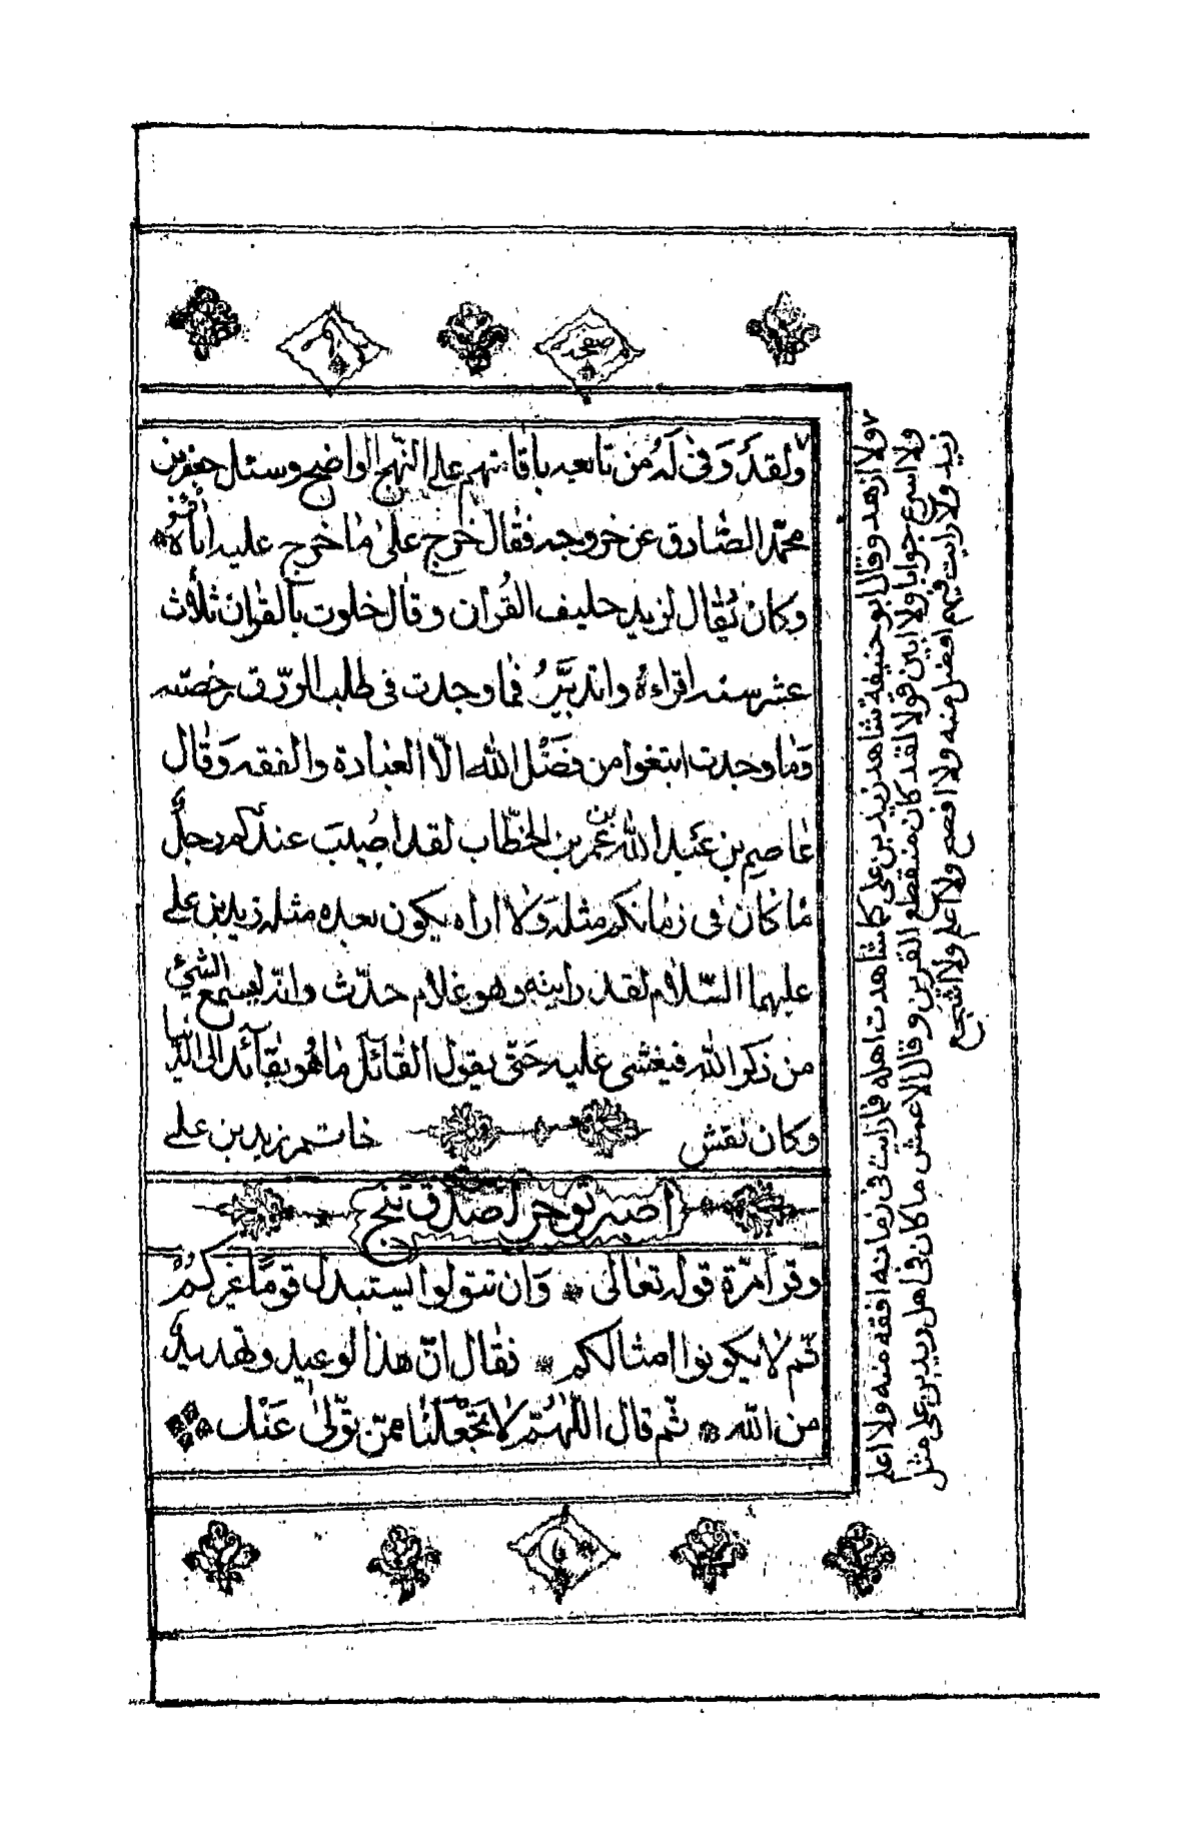 صفحه
ولقد وفى له من تابعه باقامتهم على النهج الواضح وسئل جعفر بن
محمد الصادق عن خروجه فقال خرج على ما خرج عليه اباؤه
وكان يقال لزيد حليف القرآن وقال خلوت بالقرآن ثلاث
عشر سنه اقراءه واتدبره فما وجدت في طلب الرزق رخصته
وما وجدت ابتغوا من فضل الله الّا العبادة والفقه وقال
عاصم بن عبد الله بن عمر بن الخطّاب لقد اصيب عندكم رجل
ما كان في زمانكم مثله ولا اراه يكون بعده مثله زيد بن على
عليهما السّلام لقد رايته وهو غلام حدّث وانّه ليسمع الشئ
من ذكر الله فيغشى عليه حتى يقول القائل ما هو بقائد الى الدّنيا
وكان نقش خاتم زيد بن على
اصبر توجر اصدق تنج
وقرأ مرّة قوله تعالى وان تتولوا يستبدل قومًا غيركم
ثم لا يكونوا امثالكم فقال انّ هذا لوعيد وتهديد
من الله ثم قال اللّهمّ لا تجعلنا ممّن تولّى عنك
ولا ازهد وقال ابو حنيفة شاهد زيد بن على كما شاهدت اهله فما رايت في زمانه افقه منه ولا اعلم
ولا اسرع جوابا ولا ابين قولا لقد كان منقطع القرين وقال الاعمش ما كان في اهل زيد بن على مثل
زيد ولا رايت فيهم افضل منه ولا افصح ولا اعلم ولا اشجع